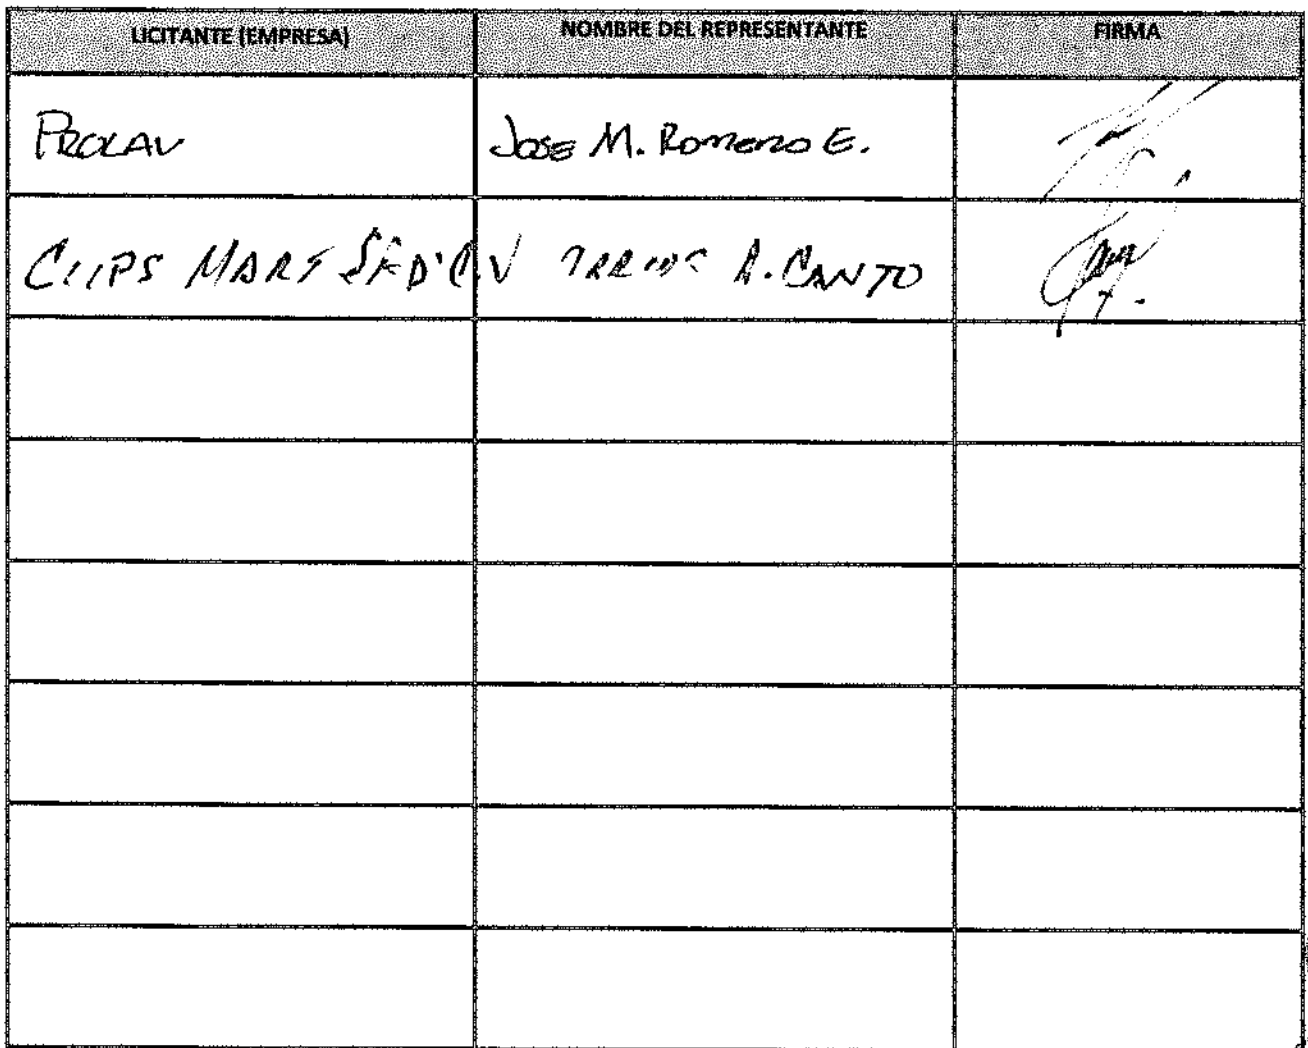 LICITANTE (EMPRESA) NOMBRE DEL REPRESENTANTE FIRMA
PROLAV JOSE M. ROMERO E.
CLIPS MART A. CANTO